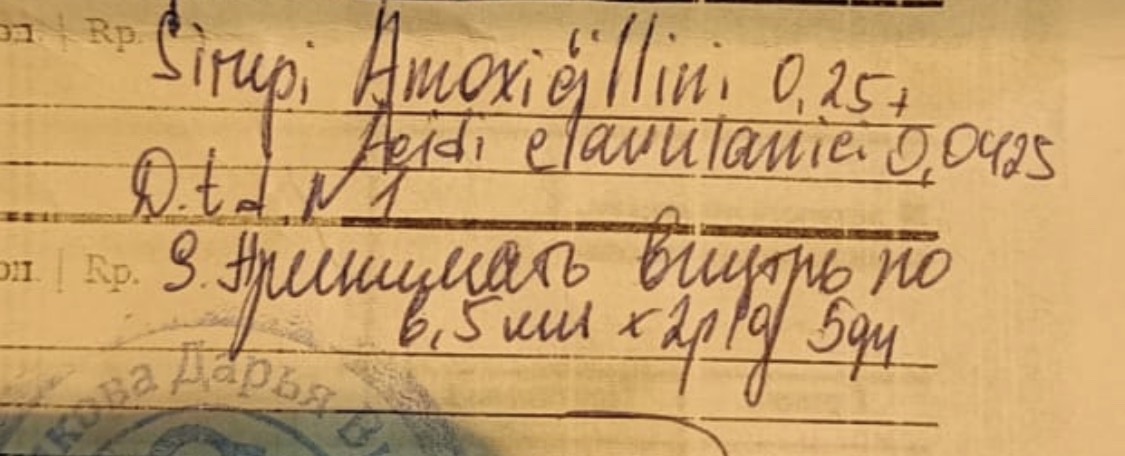 ол | Rp. Sirupi Amoxicillini 0,25+
Acidi clavulanici 0,0425
D.t.d. N 1
ол. | Rp. S. Принимать внутрь по
6,5 мл x 2р/д 5дн
кова Дарья Ви